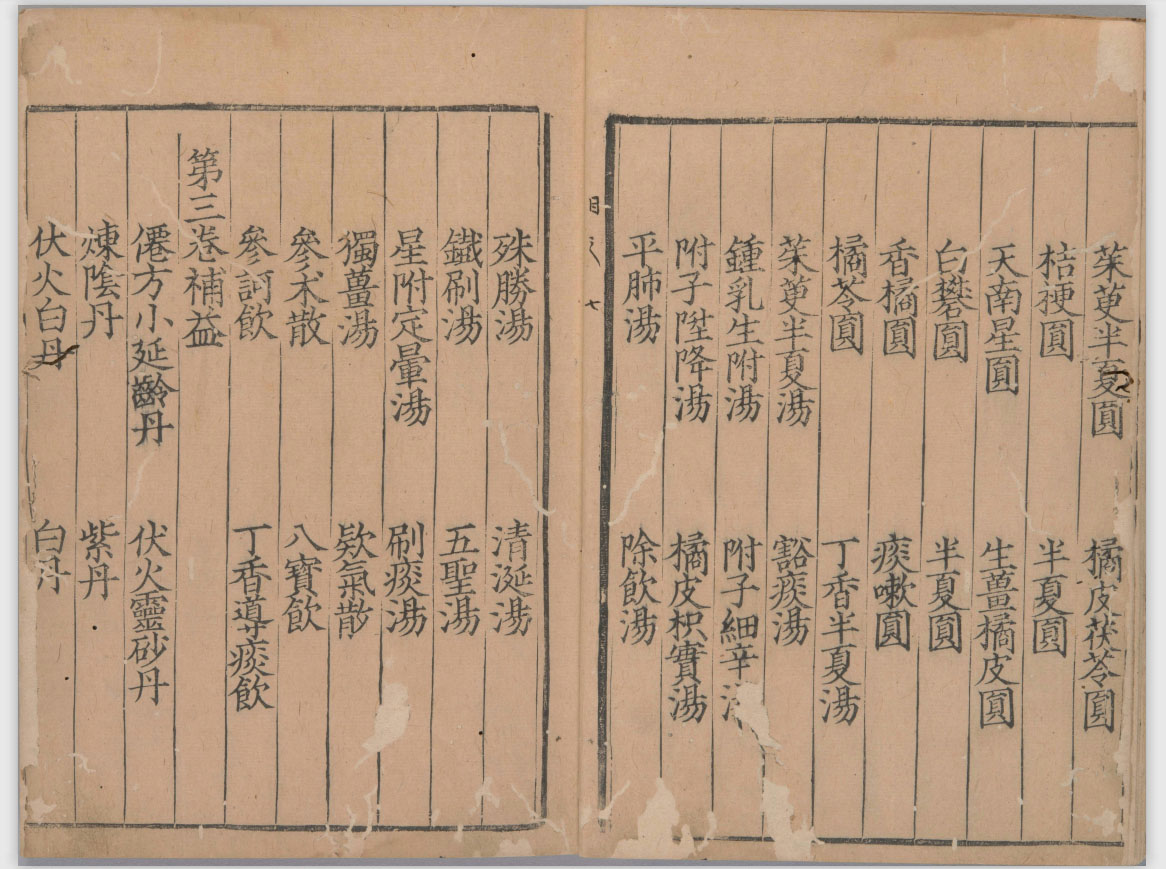 茱萸半夏圓 橘皮茯苓圓
桔梗圓 半夏圓
天南星圓 生薑橘皮圓
白礬圓 半夏圓
香橘圓 痰嗽圓
橘苓圓 丁香半夏湯
茱萸半夏湯 豁痰湯
鍾乳生附湯 附子細辛
附子陞降湯 橘皮枳實湯
平肺湯 除飲湯
目 七
殊勝湯 清涎湯
鐵刷湯 五聖湯
星附定暈湯 刷痰湯
獨薑湯 欵氣散
參朮散 八寶飲
參訶飲 丁香導痰飲
第三卷補益
僊方小延齡丹 伏火靈砂丹
煉陰丹 紫丹
伏火白丹 白丹